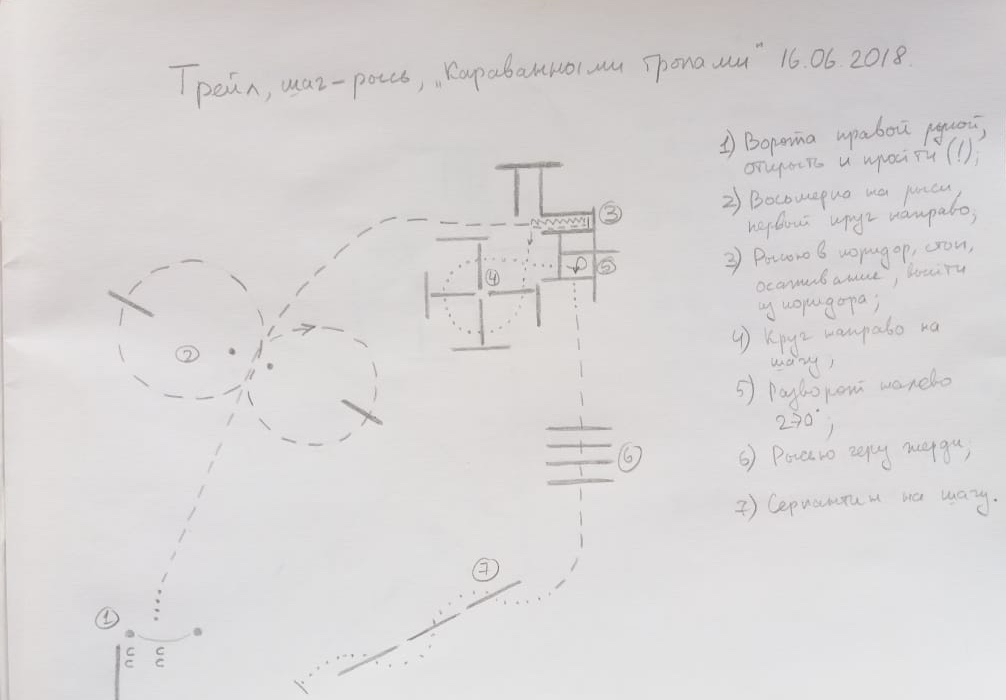 Трейл, шаг-рысь, „Караванными тропами" 16.06.2018.
1) Ворота правой рукой,
открыть и пройти (!);
2) Восьмерка на рыси,
первый круг направо;
3) Рысью в коридор, стоп,
осаживание, выйти
из коридора;
4) Круг направо на
шагу;
5) Разворот налево
270°;
6) Рысью через жерди;
7) Серпантин на шагу.
3
4
5
2
6
7
1